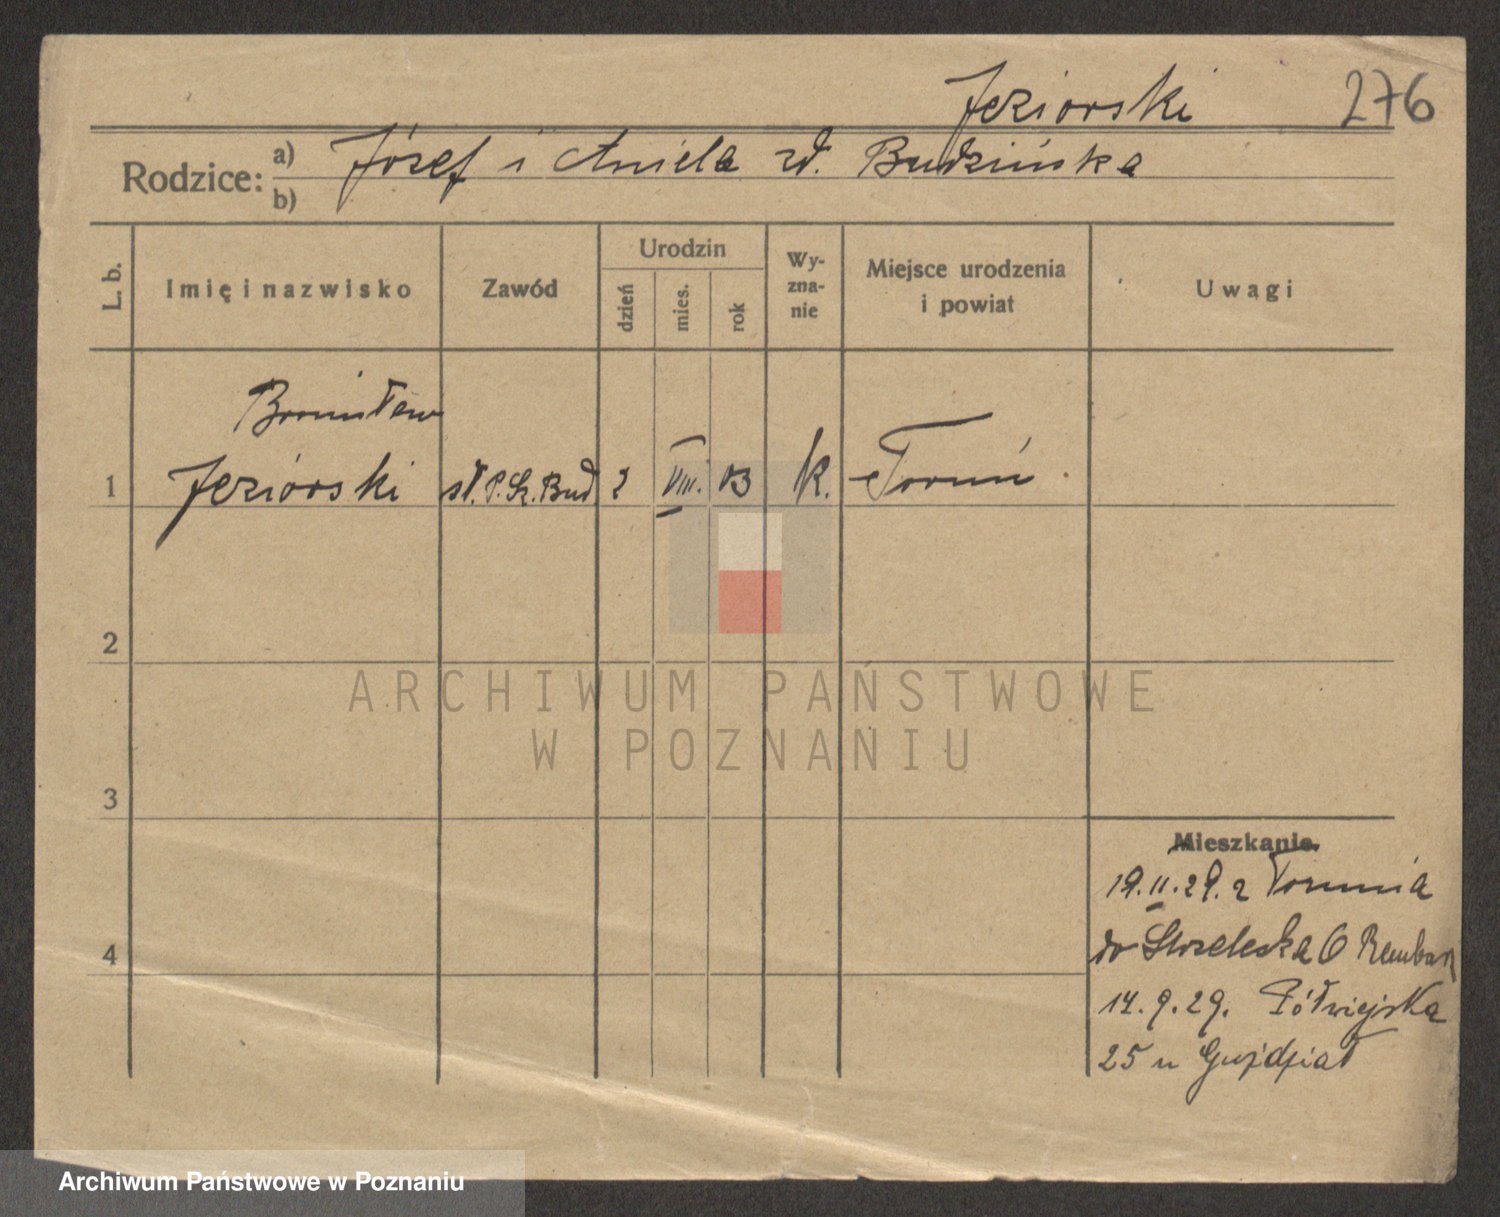 Jeziorski 276
Rodzice: a) Józef i Aniela zd. Budzińska
b)
L. b.
Imię i nazwisko
Zawód
Urodzin
dzień
mies.
rok
Wy-
zna-
nie
Miejsce urodzenia
i powiat
Uwagi
Bronisław
1 Jeziorski st. P. Sz. Bud 2 VIII. 03 k. Toruń
2
ARCHIWUM PAŃSTWOWE
W POZNANIU
3
Mieszkanie
19.II.29. z Torunia
do Strzelecka 6
4
14.9.29. Półwiejska
25 u
Archiwum Państwowe w Poznaniu